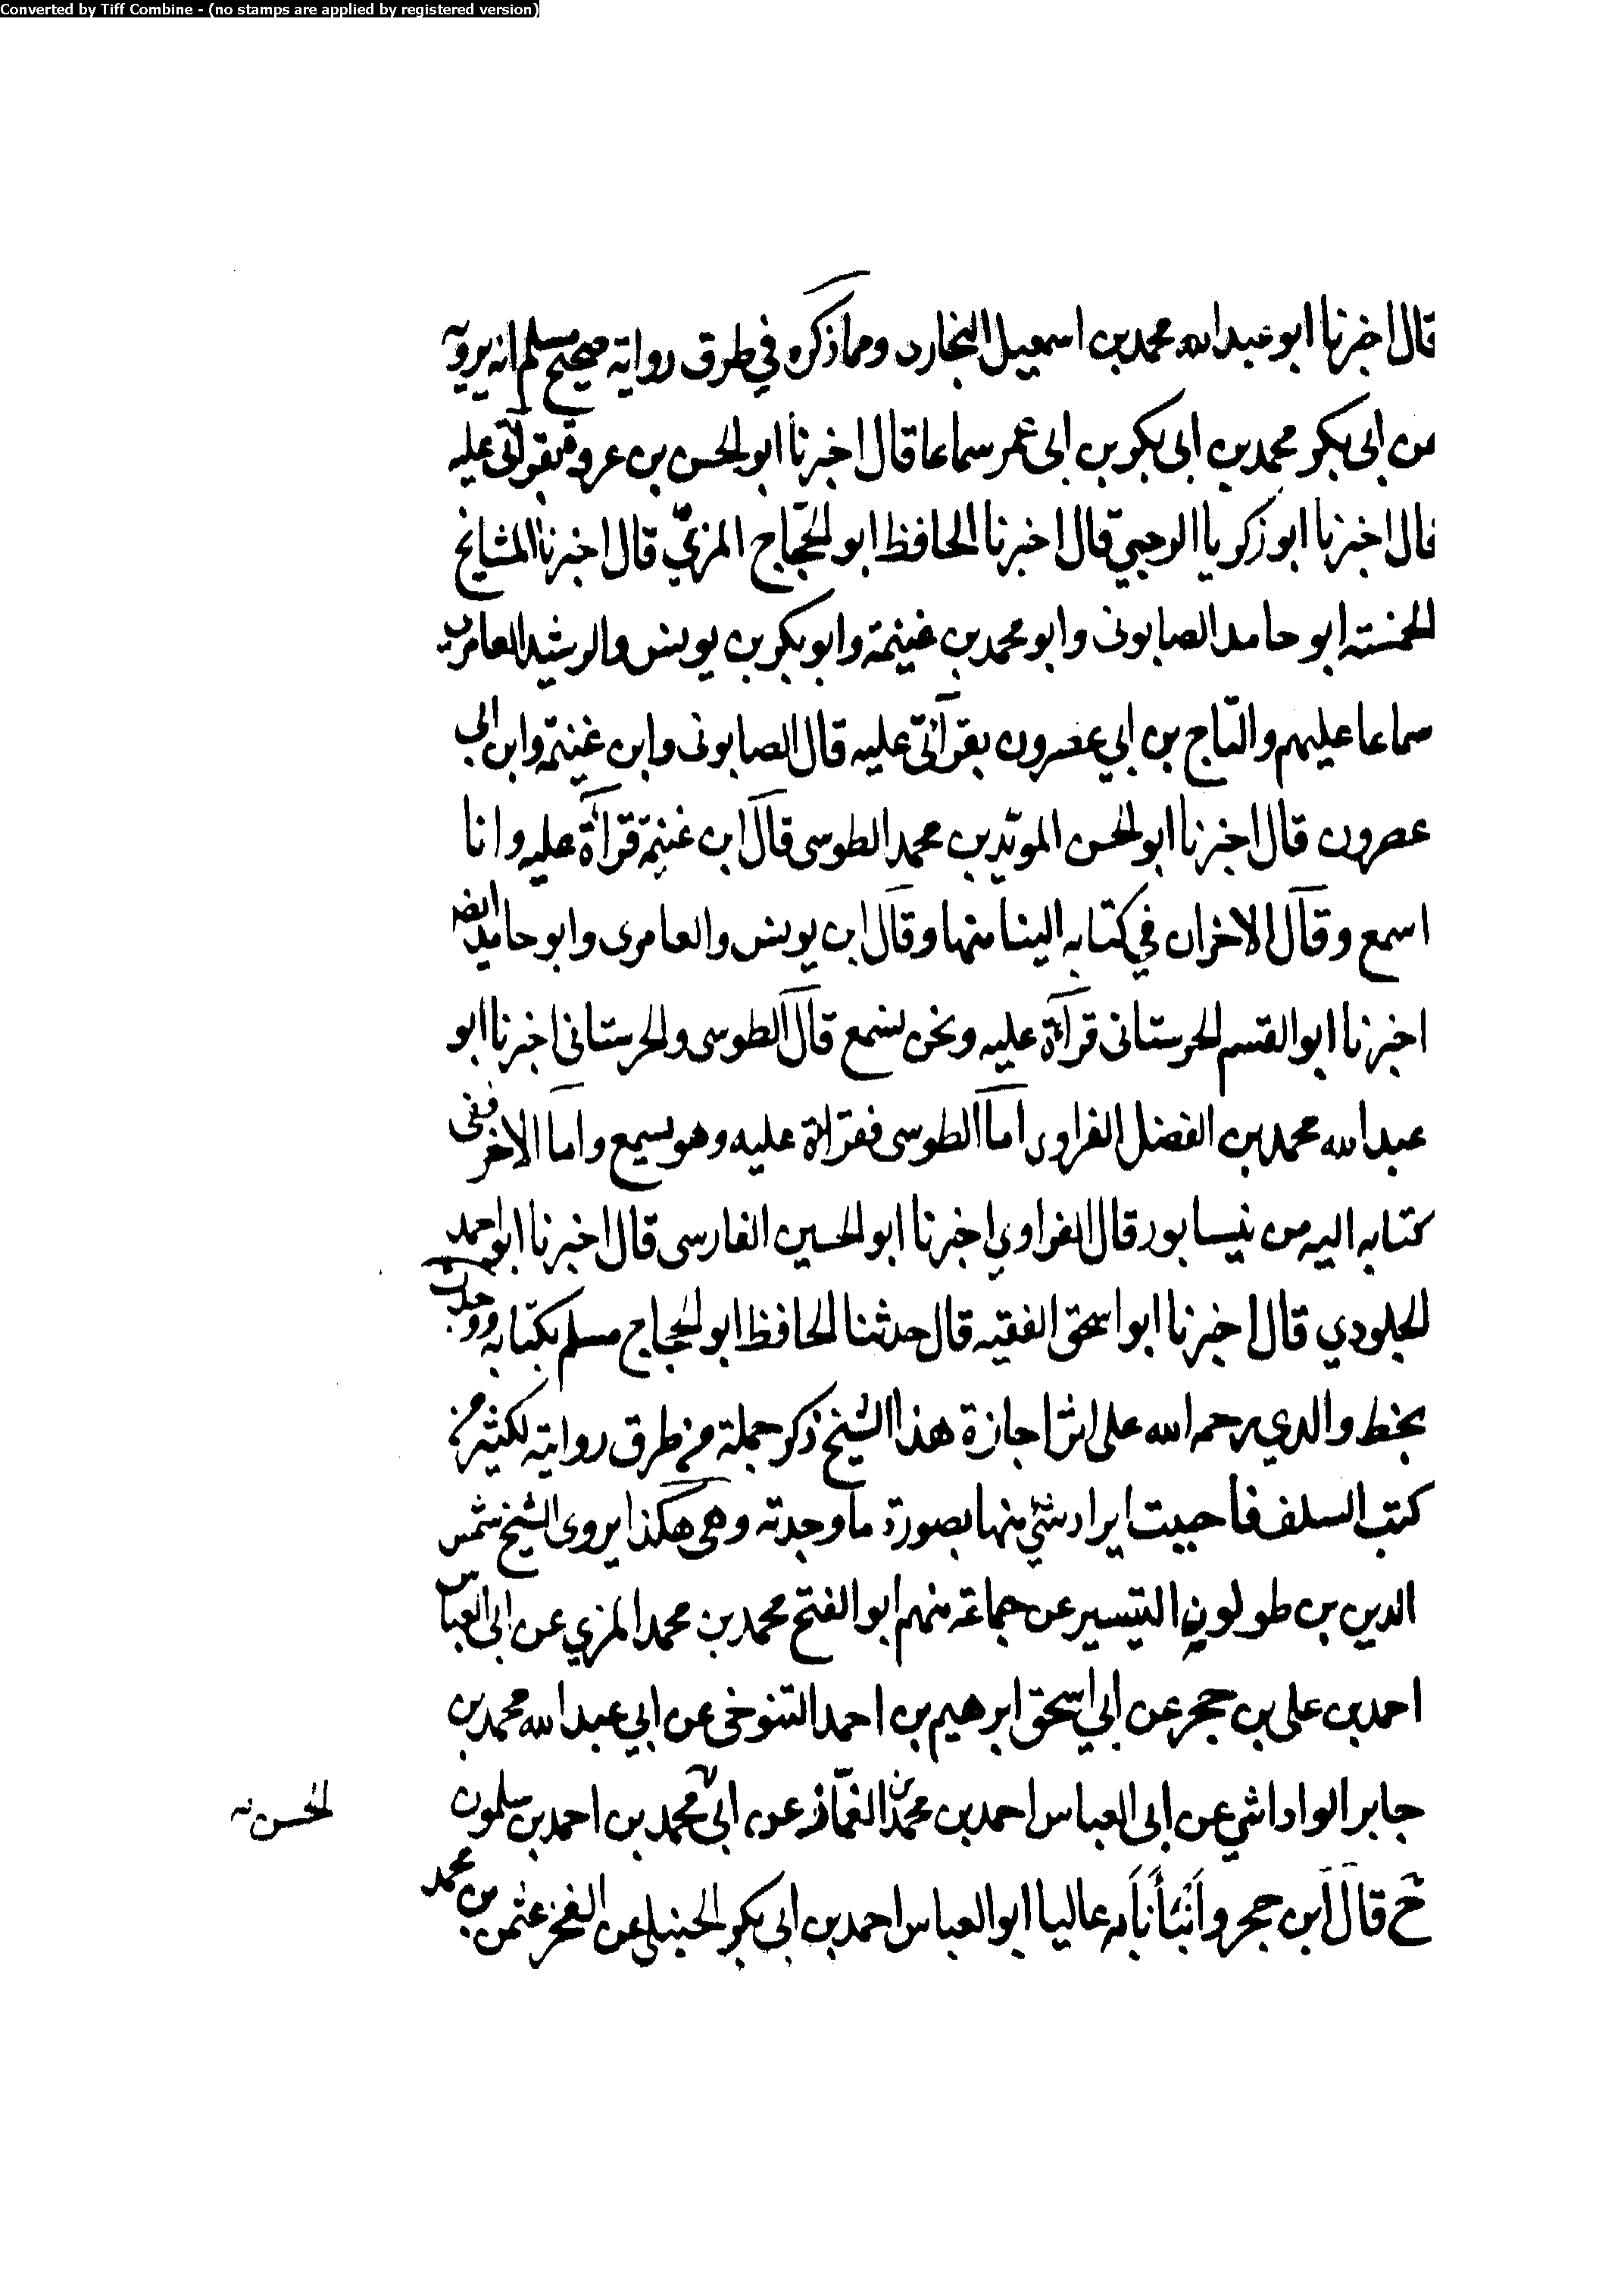 Converted by Tiff Combine - (no stamps are applied by registered version)
قال اخبرنا ابو عبد الله محمد بن اسمعيل البخاري ومما ذكره في طرق رواية صحيح مسلم انه يرويه
من ابى بكر محمد بن ابى بكر بن ابى عمر سماعا قال اخبرنا ابو الحسن بن عروة بقرآتى عليه
قال اخبرنا ابو زكريا الرحبي قال اخبرنا الحافظ ابو الحجّاج المزيّ قال اخبرنا المشايخ
الخمسة ابو حامد الصابونى وابو محمد بن غنيمة وابو بكر بن يونس والرشيد العامرى
سماعا عليهم والتاج بن ابي عصرون بقرآتى عليه قال الصابونى وابن غنيمة وابن ابى
عصرون قال اخبرنا ابو الحسن المويّد بن محمد الطوسى قال ابن غنيمة قرآة عليه وانا
اسمع وقال الاخران في كتابه الينا منها وقال ابن يونس والعامرى وابو حامد ايضا
اخبرنا ابو القسم الحرستانى قرآة عليه ونحن نسمع قال الطوسى والحرستانى اخبرنا ابو
عبد الله محمد بن الفضل الفراوى اما الطوسى فقراة عليه وهو يسمع واما الاخر ففى
كتابه اليه من نيسابور قال الفراوي اخبرنا ابو الحسين الفارسى قال اخبرنا ابو احمد
الجلودي قال اخبرنا ابو اسحق الفقيه قال حدثنا الحافظ ابو الحجاج مسلم بكتابه ووجدت
بخط والدي رحمه الله على اثر اجازة هذا الشيخ ذكر جملة من طرق روايته لكثير من
كتب السلف فاحببت ايراد شئ منها بصورة ما وجدته وهى هكذا يروى الشيخ شمس
الدين بن طولون التيسير عن جماعة منهم ابو الفتح محمد بن محمد المزي عن ابى العباس
احمد بن على بن حجر عن ابي اسحق ابرهيم بن احمد التنوخى عن ابي عبد الله محمد بن
جابر الواداشي عن ابى العباس احمد بن محمد بن الغمّاز عن ابى محمد بن احمد بن سلمون
الحسن
ح قال ابن حجر وأنبأنا به عاليا ابو العباس احمد بن ابى بكر الحنبلى عن الفخر عثمن بن محمد